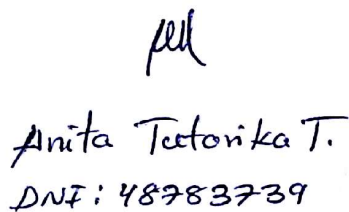 Anita Tutorika T.
DNI: 48783739